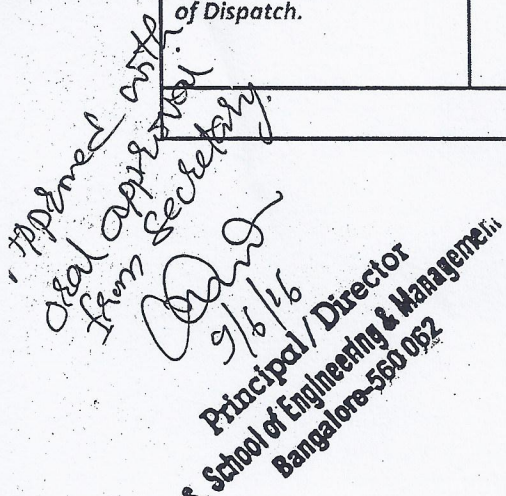 of Dispatch.
Approved with
oral approval
from Secretary.
9/6/16
Principal / Director
School of Engineering & Management
Bangalore-560 062